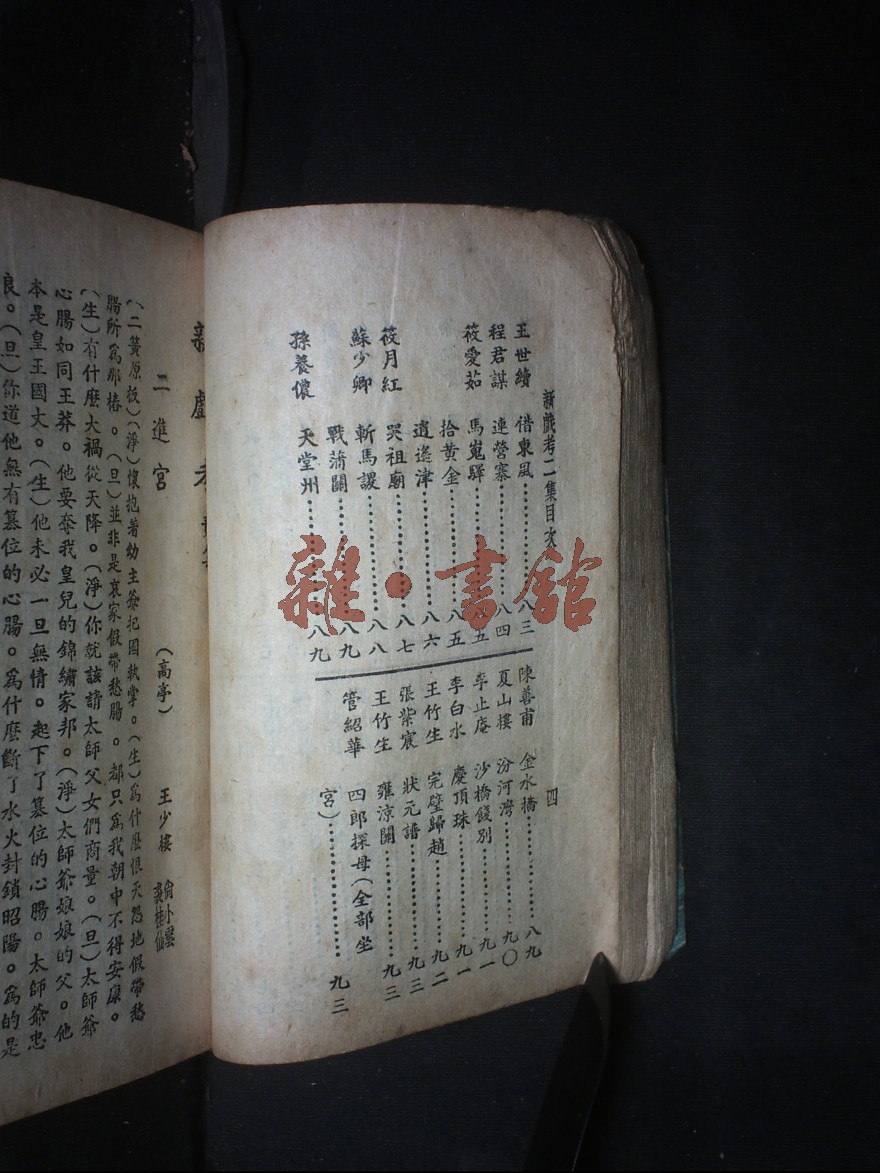 新戲考二集目次
四
王世續　借東風……八三
程君謀　連營寨……八四
筱愛茹　馬嵬驛……八五
拾黃金……八五
逍遙津……八六
筱月紅　哭祖廟……八七
蘇少卿　斬馬謖……八八
戰蒲關……八九
孫養儂　天堂州……八九
陳善甫　金水橋……八九
夏山樓　汾河灣……九〇
李止庵　沙橋餞別……九一
李白水　慶頂珠……九一
王竹生　完璧歸趙……九二
張紫宸　狀元譜……九三
王竹生　雍涼關……九三
管紹華　四郎探母（全部坐
宮）……九三
新戲考
二進宮　（高亭）　王少樓
（二簧原板）（淨）懷抱着幼主爺把國執掌。（生）爲什麽恨天怨地假帶愁
腸所爲那樁。（旦）並非是哀家假帶愁腸。都只爲我朝中不得安康。
（生）有什麽大禍從天降。（淨）你就該請太師父女們商量。（旦）太師爺
心腸如同王莽。他要奪我皇兒的錦繡家邦。（淨）太師爺娘娘的父。他
本是皇王國丈。（生）他未必一旦無情。起下了篡位的心腸。太師爺忠
良。（旦）你道他無有篡位的心腸。爲什麽斷了水火封鎖昭陽。爲的是
雜·書館